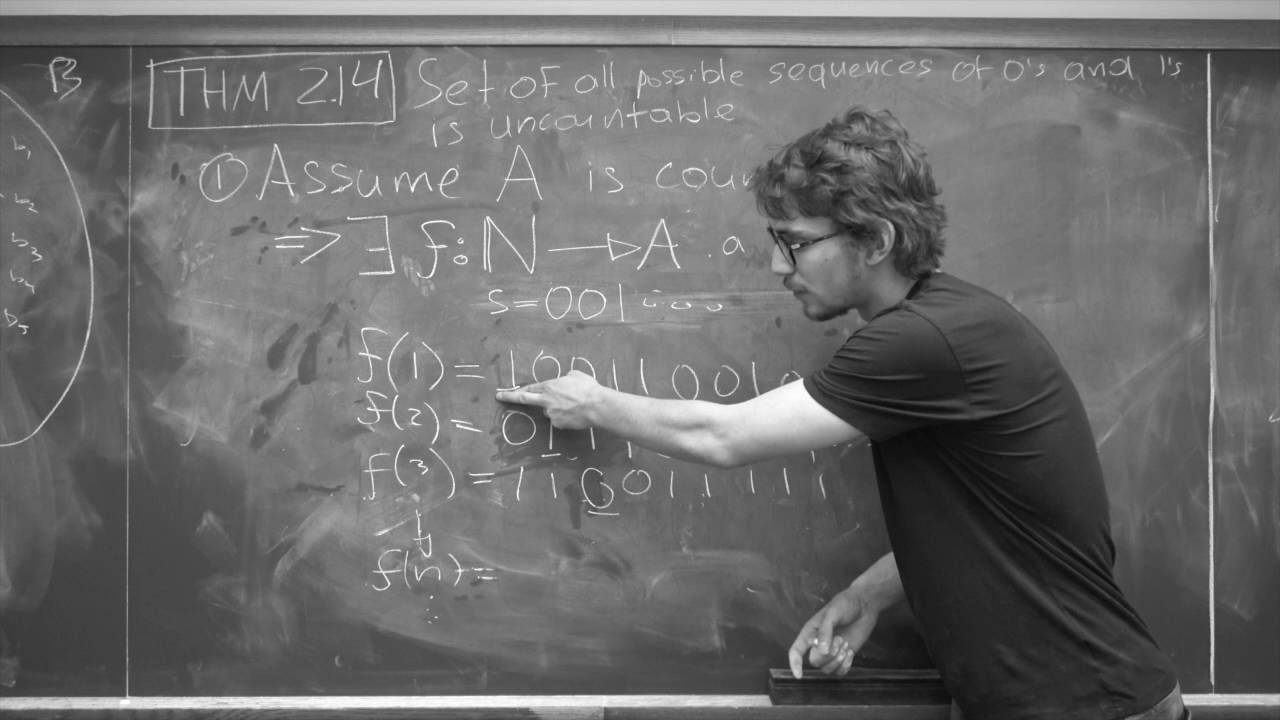 B
b₁
b₂
b₃
b₄
b₅
THM 2.14 Set of all possible sequences of 0's and 1's
is uncountable
① Assume A is coun
=> ∃ f: ℕ → A . a
s = 001.....
f(1) = 100110010
f(2) = 011
f(3) = 110011111
↓
f(n) =
: